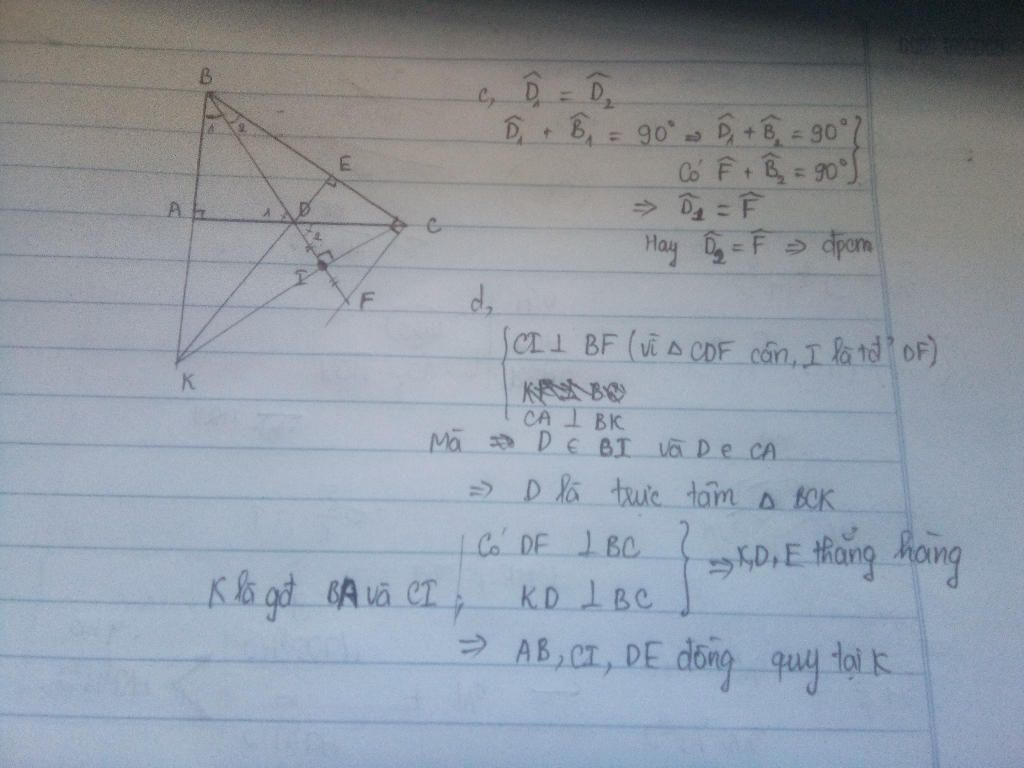 B
1 2
E
A
1 2 D
C
2
I
F
K
c, D̂₁ = D̂₂
D̂₁ + B̂₁ = 90° => D̂₁ + B̂₂ = 90°
Có F̂ + B̂₂ = 90°
=> D̂₁ = F̂
Hay D̂₂ = F̂ => đpcm
d,
CI ⊥ BF (vì △ CDF cân, I là tđ' DF)
CA ⊥ BK
Mà => D ∈ BI và D ∈ CA
=> D là trực tâm △ BCK
Có DF ⊥ BC
K là gđ BA và CI ; KD ⊥ BC => K, D, E thẳng hàng
=> AB, CI, DE đồng quy tại K